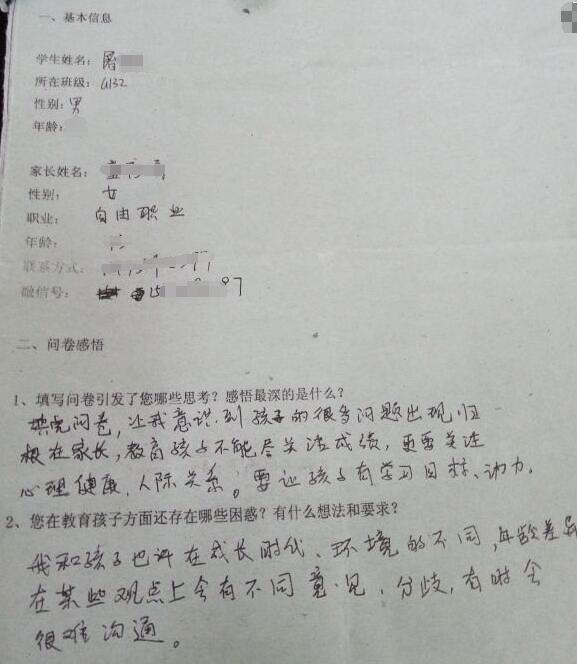 一、基本信息
学生姓名：屠
所在班级：G132
性别：男
年龄：
家长姓名：
性别： 女
职业： 自由职业
年龄：
联系方式：
微信号： 15 97
二、问卷感悟
1、填写问卷引发了您哪些思考？感悟最深的是什么？
填完问卷，让我意识到孩子的很多问题出现，归
根在家长，教育孩子不能尽关注成绩，更要关注
心理健康，人际关系。要让孩子有学习目标、动力。
2、您在教育孩子方面还存在哪些困惑？有什么想法和要求？
我和孩子也许在成长时代、环境的不同，年龄差异
在某些观点上会有不同意见、分歧，有时会
很难沟通。